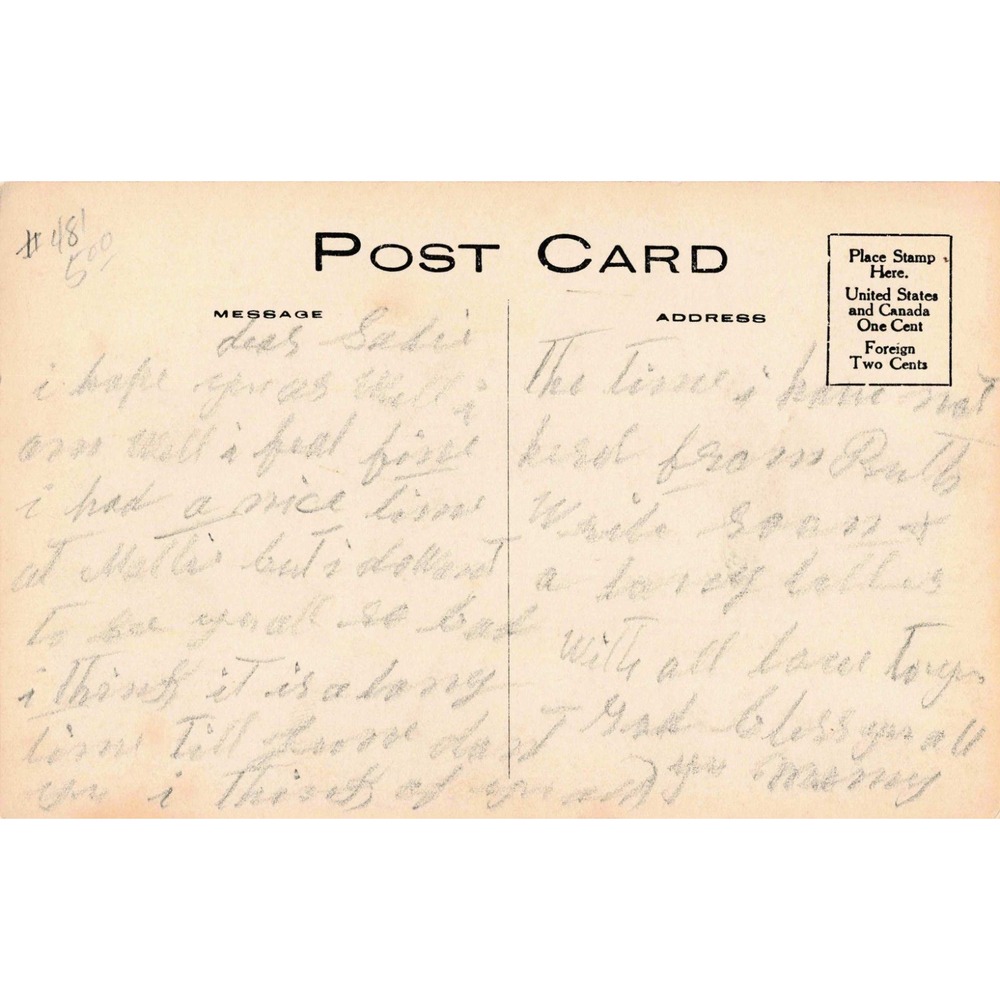 #48
5.00
POST CARD
Place Stamp
Here.
United States
and Canada
One Cent
Foreign
Two Cents
MESSAGE
ADDRESS
dear Sadie
i hope you as well i
am well i feel fine
i had a nice time
at Mattie but i do want
to see you all so bad
i think it is a long
time till June dont
you i think of you all
The time i have not
herd from Ruth
Write soon &
a long letter
With all love to you
God bless you all
Mamy